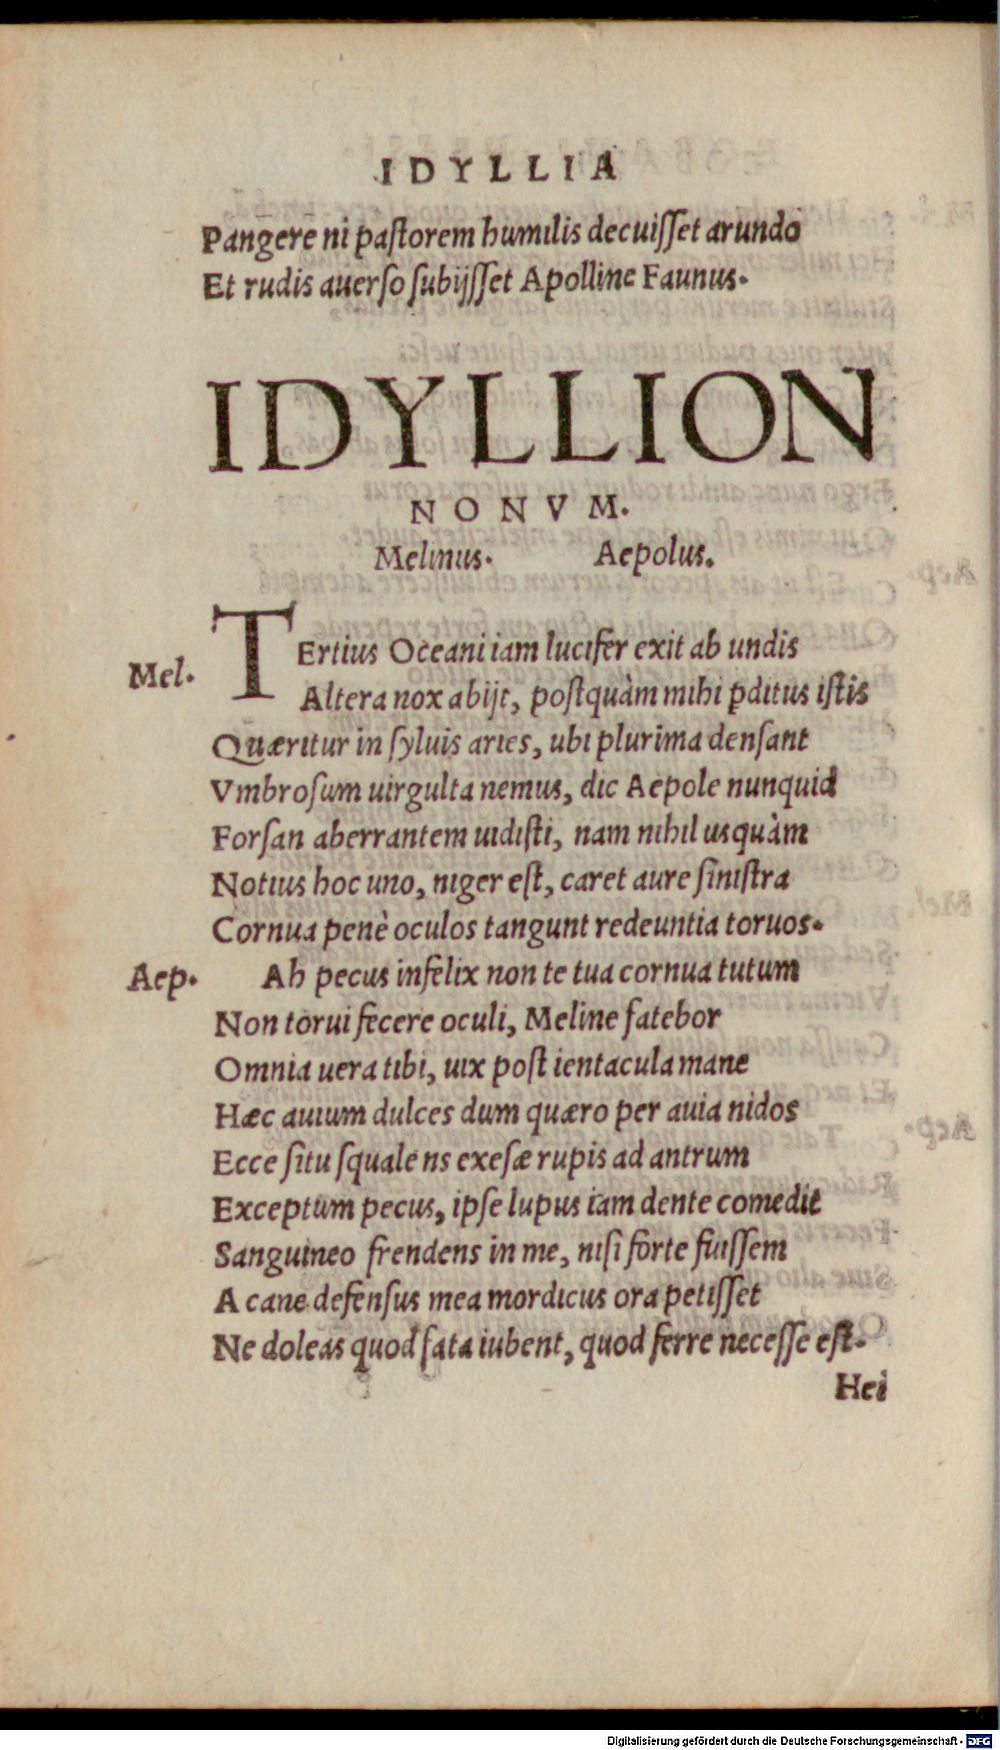 IDYLLIA
Pangere ni pastorem humilis decuisset arundo
Et rudis auerso subijsset Apolline Faunus.
IDYLLION
NONVM.
Melinus. Aepolus.
Mel. TErtius Oceani iam lucifer exit ab undis
Altera nox abijt, postquàm mihi pditus istis
Quæritur in syluis aries, ubi plurima densant
Vmbrosum uirgulta nemus, dic Aepole nunquid
Forsan aberrantem uidisti, nam nihil usquàm
Notius hoc uno, niger est, caret aure sinistra
Cornua penè oculos tangunt redeuntia toruos.
Aep. Ah pecus infelix non te tua cornua tutum
Non torui fecere oculi, Meline fatebor
Omnia uera tibi, uix post ientacula mane
Hæc auium dulces dum quæro per auia nidos
Ecce situ squalens exesæ rupis ad antrum
Exceptum pecus, ipse lupus iam dente comedit
Sanguineo frendens in me, nisi forte fuissem
A cane defensus mea mordicus ora petisset
Ne doleas quod fata iubent, quod ferre necesse est.
Hei
Digitalisierung gefördert durch die Deutsche Forschungsgemeinschaft - DFG